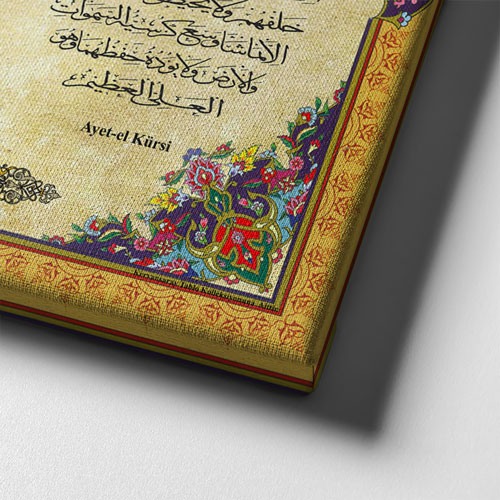 خلفهم ولا يحيطون
الا بما شاء وسع كرسيه السموات
والارض ولا يؤده حفظهما وهو
العلي العظيم
Ayet-el Kürsi